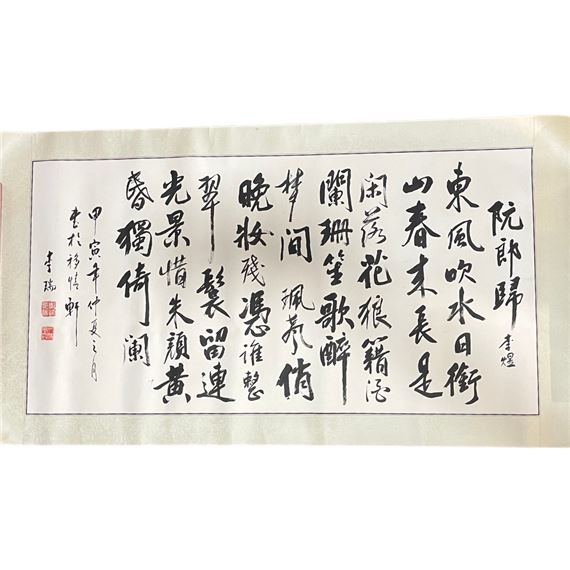 阮郎歸 李煜
東風吹水日銜
山春来長是
闲落花狼籍酒
闌珊笙歌醉
梦间珮声悄
晚妆殘憑誰整
翠鬟留連
光景惜朱顏黄
昏獨倚闌
甲寅年仲夏之月
书於移情軒
李瑞